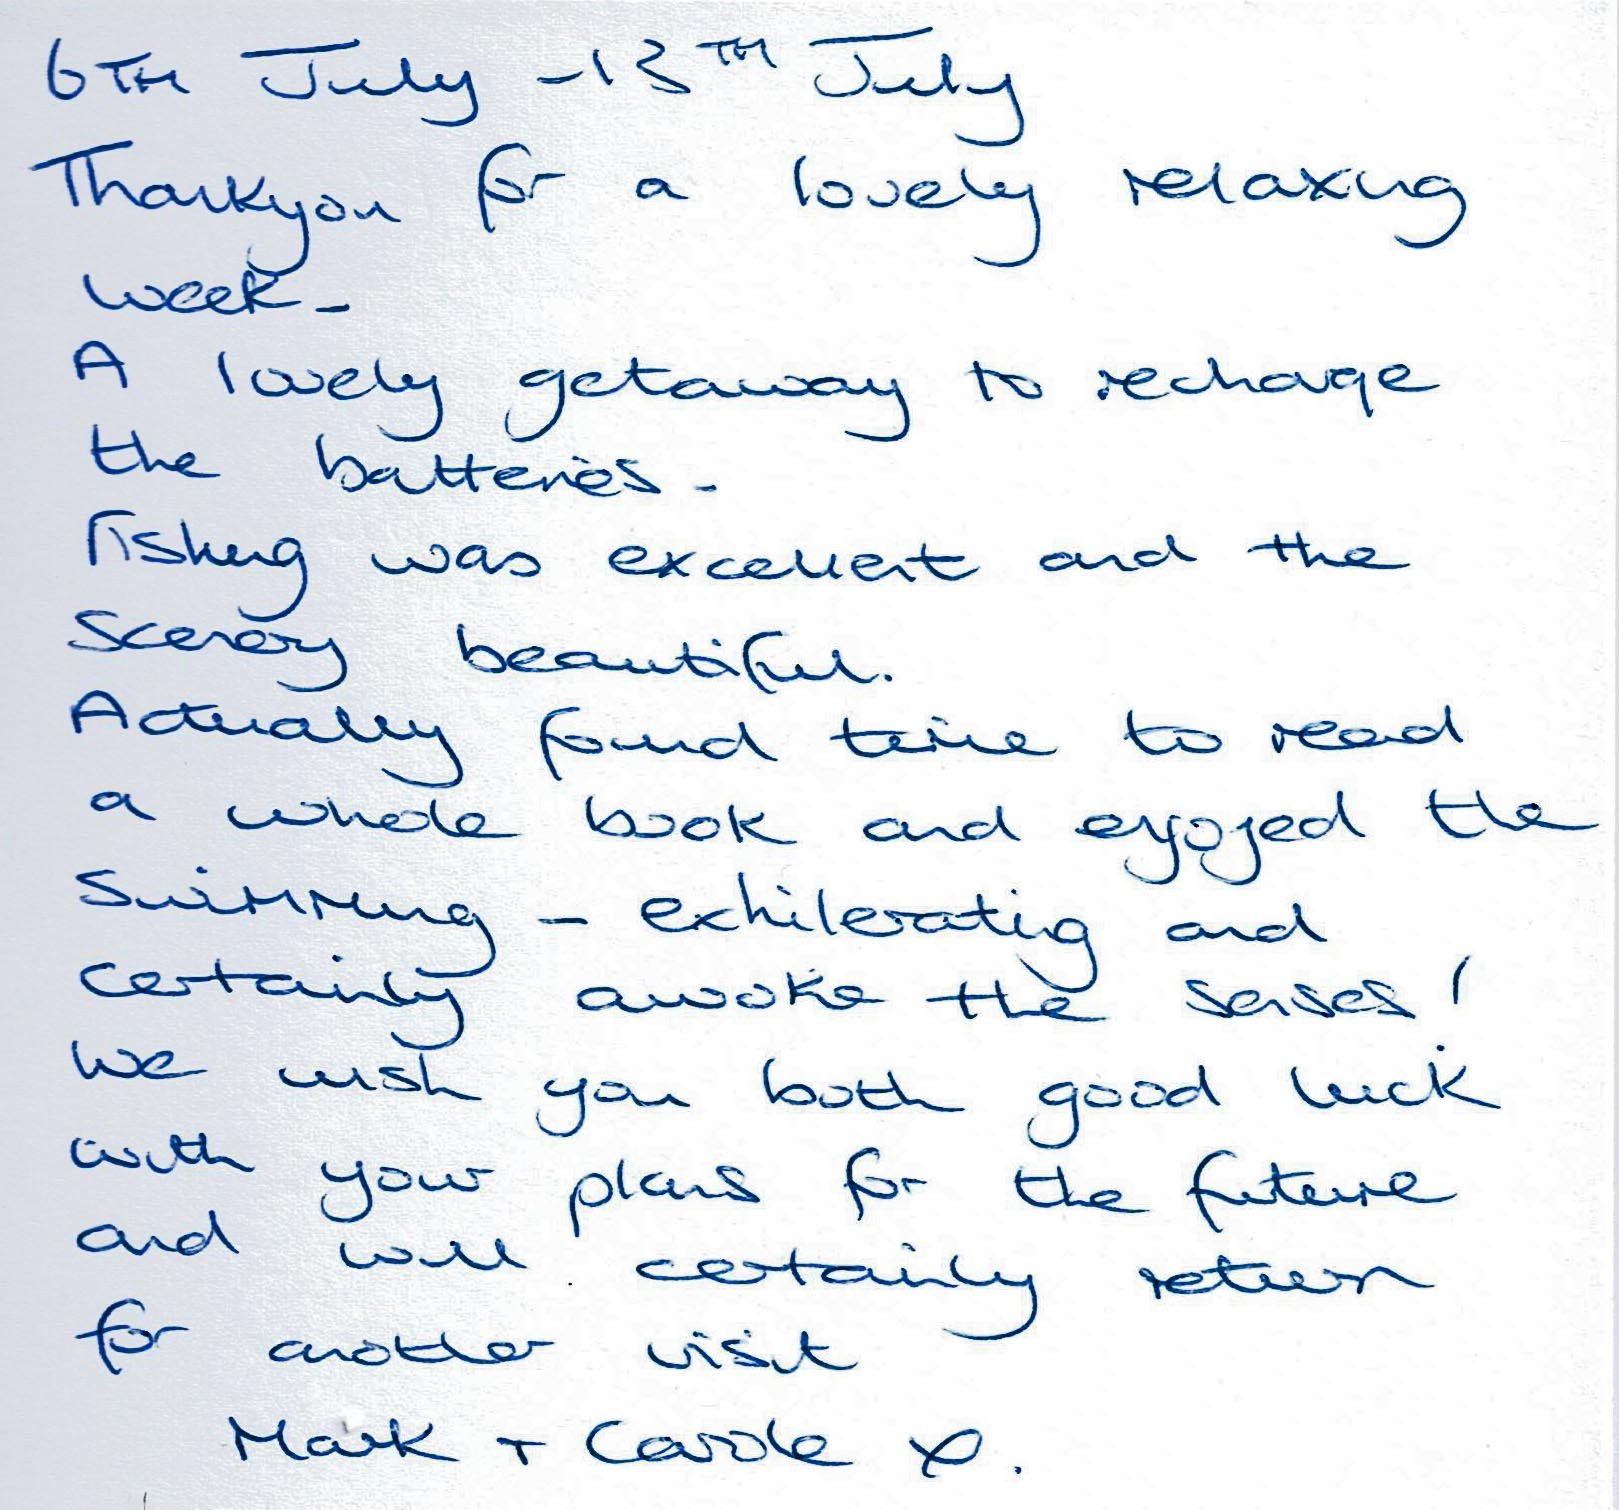 6TH July - 13TH July
Thankyou for a lovely relaxing
week -
A lovely getaway to recharge
the batteries -
Fishing was excellent and the
scenery beautiful.
Actually found time to read
a whole book and enjoyed the
swimming - exhilerating and
certainly awoke the senses!
We wish you both good luck
with your plans for the future
and will certainly return
for another visit
Mark + Carole x.